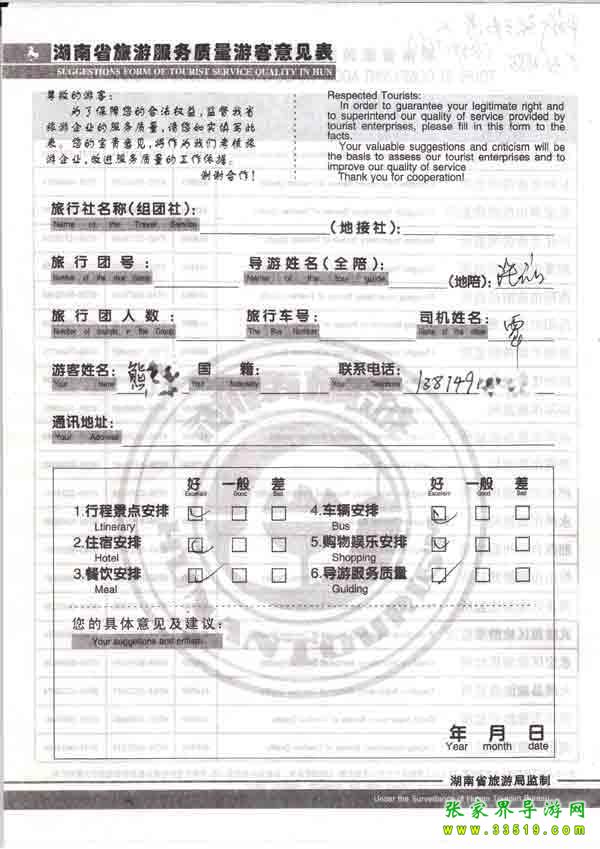 湖南省旅游服务质量游客意见表
SUGGESTIONS FORM OF TOURIST SERVICE QUALITY IN HUN
尊敬的游客:
为了保障您的合法权益,监督我省
旅游企业的服务质量,请您如实填写此
表。您的宝贵意见,将作为我们考核旅
游企业,改进服务质量的工作依据。
谢谢合作!
Respected Tourists:
In order to guarantee your legitimate right and
to superintend our quality of service provided by
tourist enterprises, please fill in this form to the
facts.
Your valuable suggestions and criticism will be
the basis to assess our tourist enterprises and to
improve our quality of service
Thank you for cooperation!
旅行社名称(组团社): (地接社):
Name of the Travel Service
旅行团号: 导游姓名(全陪): (地陪):
Number of the tour Group Name of the tour guide
旅行团人数: 旅行车号: 司机姓名:
Number of tourists in the Group The Bus Number Name of the driver
游客姓名: 熊 国籍: 联系电话: 138149
Your Name Your Nationality Your Telephone
通讯地址:
Your Address
好 一般 差 好 一般 差
Excellent Good Bad Excellent Good Bad
1.行程景点安排 4.车辆安排
Ltinerary Bus
2.住宿安排 5.购物娱乐安排
Hotel Shopping
3.餐饮安排 6.导游服务质量
Meal Guiding
您的具体意见及建议:
Your suggestions and critism
年 月 日
Year month date
湖南省旅游局监制
Under the Surveillance of Hunan Tourism Bureau
张家界导游网
www.33519.com